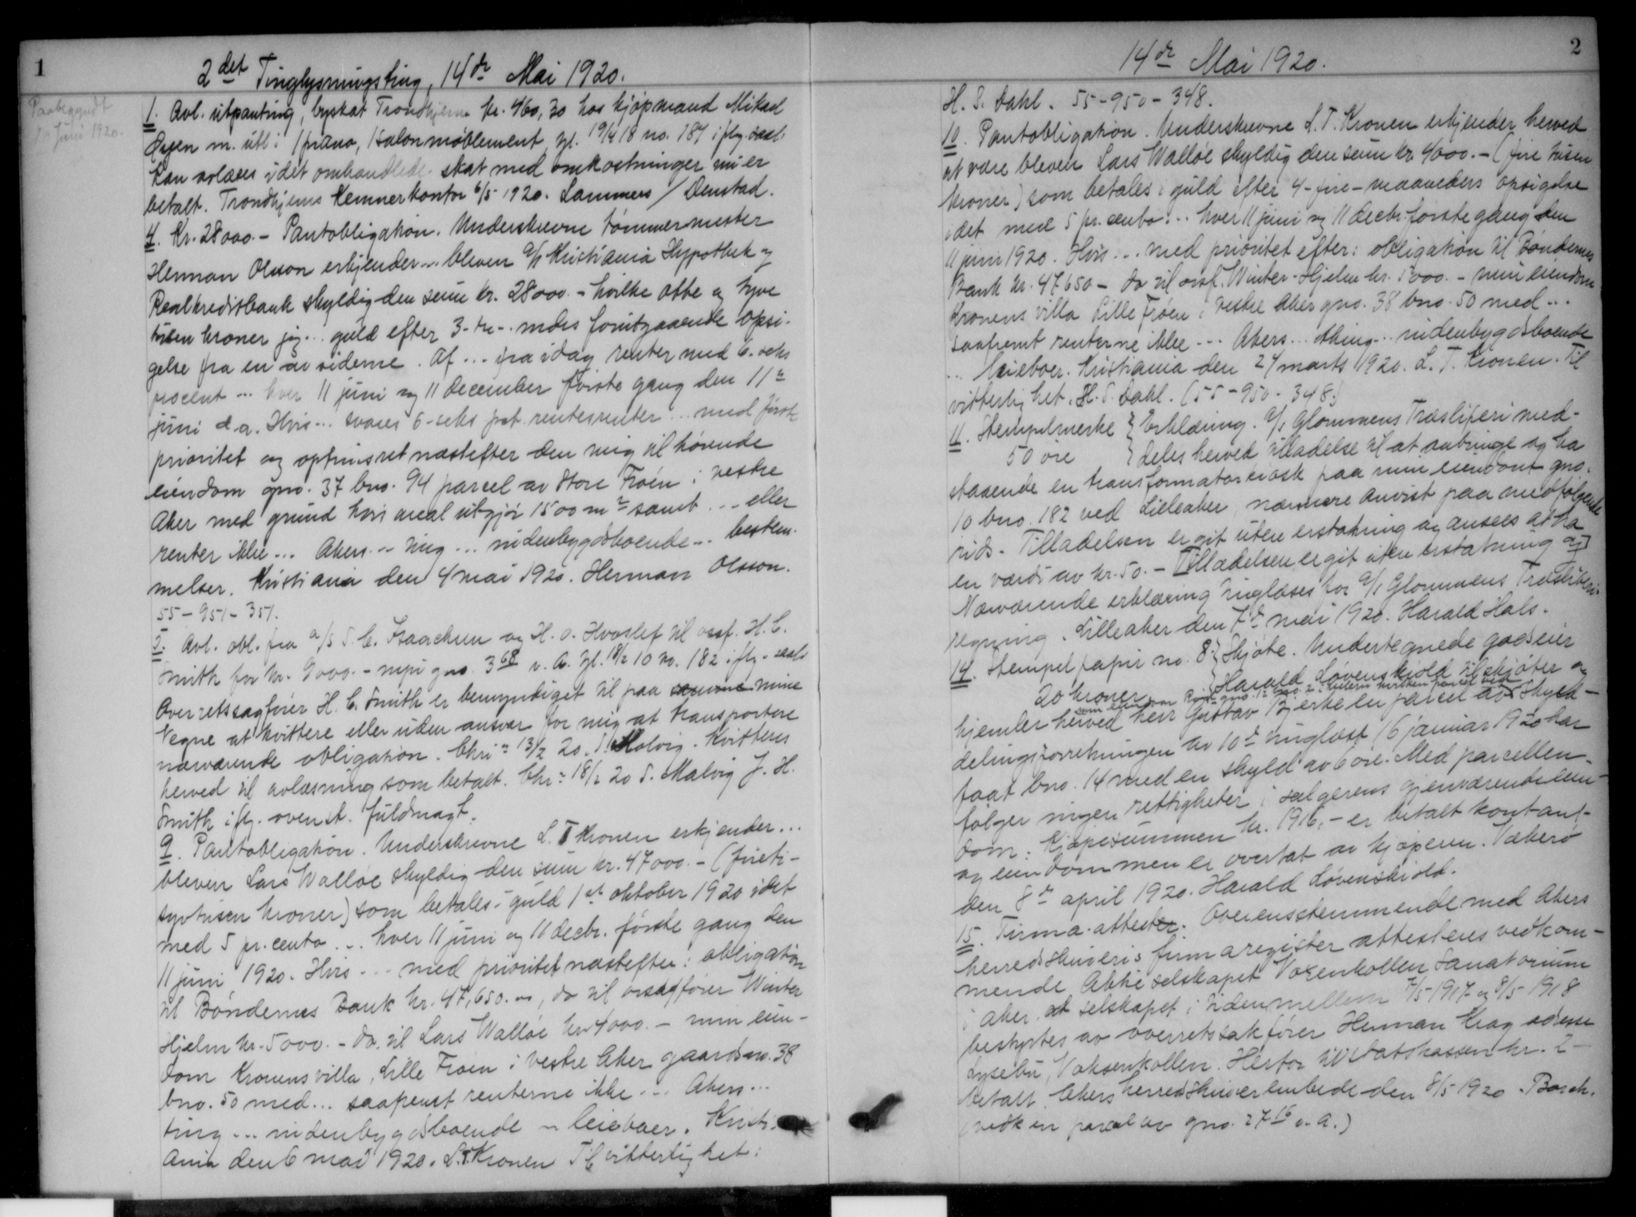 1
2det Tinglysningsting, 14de Mai 1920.
Paabegyndt
Juni 1920.
1. Avl. utpanting, byskat Trondhjem kr. 460,30 hos kjøpmand Mikal
m. utl: 1 piano, 1 salonmøblement, gl. 19/4 18 no. 187 iflg. saal.
Kan avlæses idet omhandlede skat med omkostninger nu er
betalt. Trondhjems Kemnerkontor 6/5 1920. Lammers / Denstad.
4. Kr. 28000.- Pantobligation. Underskrevne tømmermester
Herman Olsson erkjender ... bleven A/S Kristiania Hypothek og
Realkreditbank skyldig den sum kr. 28000.- hvilke otte og tyve
tusen kroner jeg ... guld efter 3-tre-. mdrs forutgaaende opsi-
gelse fra en av siderne. Af ... fra idag renter med 6. seks
procent ... hver 11 juni og 11 december første gang den 11te
juni d.a. Hvis ... svares 6-seks pct. rentesrenter ... med første
prioritet og optrinsret næstefter den mig tilhørende
eiendom gno. 37 bno. 94 parcel av Store Frøen i vestre
Aker med grund hvis areal utgjør 1500 m2 samt ... eller
renter ikke ... Akers ... ting ... nidenbygdsboende ... bestem-
melser. Kristiania den 4 mai 1920. Herman Olsson.
55-951-351.
5. Avl. obl. fra a/s S. C. Isaachsen og H. O. Hvoslef til orsf. H. C.
Smith for kr. 9000.- mpi gno. 3 68 v. A. gl. 18/2 10 no. 182 iflg. saal.
Overretssagfører H. C. Smith er bemyndiget til paa samme mine
Vegne at kvittere eller uden ansvar for mig at transportere
nærværende obligation. Chria 13/2 20. S. Malvig. Kvitteres
herved til avlæsning som betalt. Chr. 18/2 20 S. Malvig J. H.
Smith iflg. ovenst. fuldmagt.
9. Pantobligation. Underskrevne L. T. Kronen erkjender ...
bleven Lars Walløe skyldig den sum kr. 47000.- (firti-
syvtusen kroner) som betales i guld 1ste oktober 1920 idet
med 5 pr. cento ... hver 11 juni og 11 decbr. første gang den
11 juni 1920. Hvis ... med prioritet næstefter: obligation
til Bøndernes Bank kr. 47,650.00, do til orsagfører Winter
Hjelm kr. 5000.- do. til Lars Walløe kr. 4000.- min eien-
dom Kronens villa, Lille Frøen i Vestre Aker gaardsno. 38
bno. 50 med ... saafremt renterne ikke ... Akers ...
ting ... nidenbygdsboende ... leieboer. Kristi-
ania den 6 mai 1920. L. T. Kronen Til vitterlighet:
2
14de Mai 1920.
H. S. Dahl. 55-950-348.
10. Pantobligation. Underskrevne L. T. Kronen erkjender herved
at være bleven Lars Walløe skyldig den sum kr. 4000.- (fire tusen
kroner) som betales i guld efter 4-fire-maaneders opsigelse
idet med 5 pr. cento ... hver 11 juni og 11 decbr. første gang den
11 juni 1920. Hvis ... med prioritet efter: obligation til Bøndernes
Bank kr. 47.650- do til orsf. Winter-Hjelm kr. 5000.- min eiendom
Kronens villa Lille Frøen i vestre Aker gno. 38 bno. 50 med ...
saafremt renterne ikke ... Akers ... thing ... nidenbygdsboende
... leieboer. Kristiania den 24 marts 1920. L. T. Kronen. Til
vitterlighet. H. S. Dahl. (55-950-348.)
11. Stempelmerke } Erklæring. A/S Glommens Træsliperi med-
50 øre } deles herved tilladelse til at anbringe og ha
staaende en transformatorkiosk paa min eiendom gno.
10 bno. 182 ved Lilleaker, nærmere anvist paa medfølgende
rids. Tilladelsen er git uten erstatning og ansees at ha
en værdi av kr. 50.- Tilladelsen er git uten erstatning og
Nærværende erklæring tinglæses for A/S Glommens Træsliperis
regning. Lilleaker den 7de mai 1920. Harald Hals.
14. Stempelpapir no. 8. } Skjøte. Undertegnede godseier
20 kroner } Harald Løvenskiold tilskjøter og
hjemler herved herr Gustav Bjerke en parcel av skyld-
delingsforretningen av 10de tinglæst 16 januar 1920 har
faat bno. 14 med en skyld av 6 øre. Med parcellen
følger ingen rettigheter i sælgerens gjenværende eien-
dom: Kjøpesummen kr. 1916.- er betalt kontant
og eiendommen er overtat av kjøperen. Vækerø
den 8de april 1920. Harald Løvenskiold.
15. Firma-attester. Overensstemmende med Akers
herredskriveris firmaregister attesteres vedkom-
mende Aktieselskapet Voxenkollen Sanatorium
i Aker at selskapet i tiden mellem 7/5-1917 og 8/5-1918
bestyrtes av overretssakfører Herman Krag adresse
Lysebu, Voksenkollen. Herfor til Statskassen kr. 2-
betalt. Akers herredskriverembede den 8/5 1920. Borch.
(vedk en parcel av gno. 27 16 v. A.)